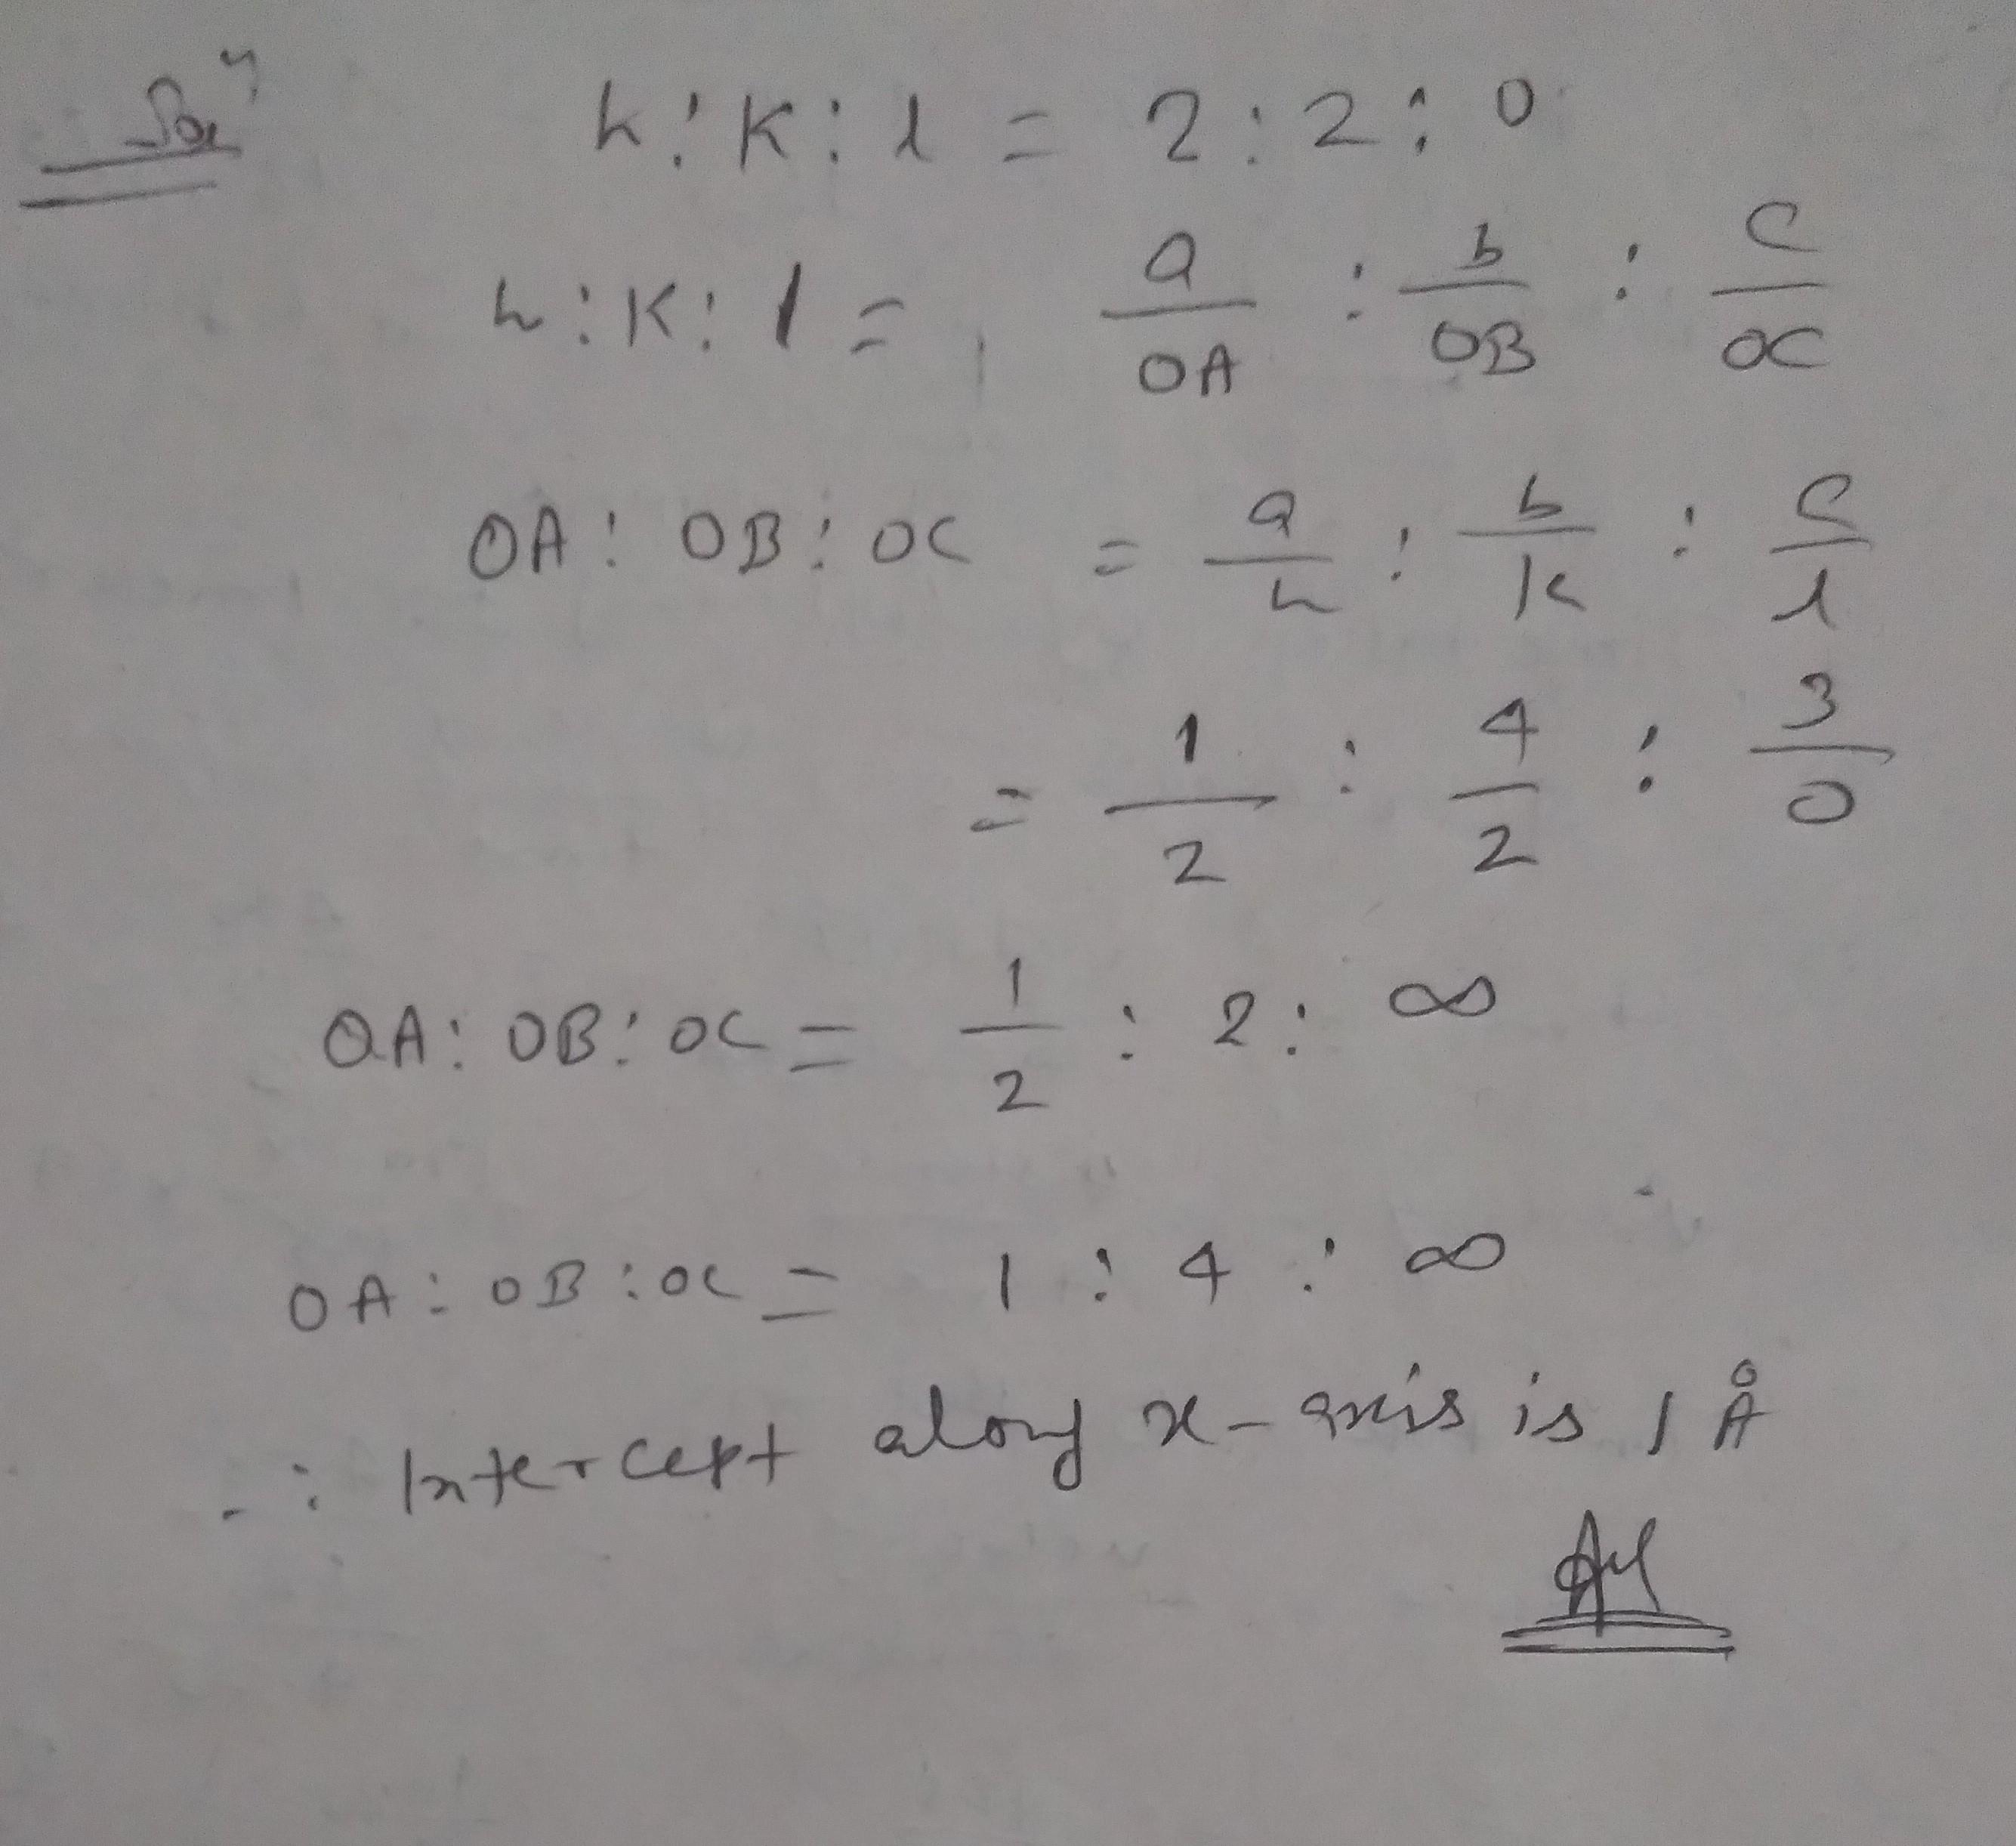 Solⁿ
h : K : l = 2 : 2 : 0
h : K : l = a/OA : b/OB : c/OC
OA : OB : OC = a/h : b/k : c/l
= 1/2 : 4/2 : 3/0
OA : OB : OC = 1/2 : 2 : ∞
OA : OB : OC = 1 : 4 : ∞
∴ Intercept along x-axis is 1 Å